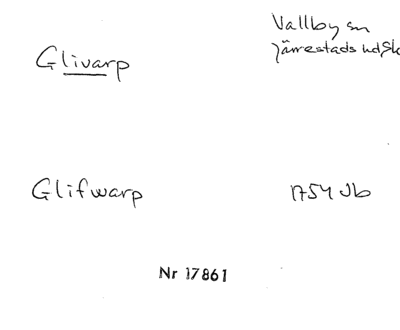 Vallby sn
Järrestads hd, Sk
Glivarp
Glifwarp
1754 Jb
Nr 17861